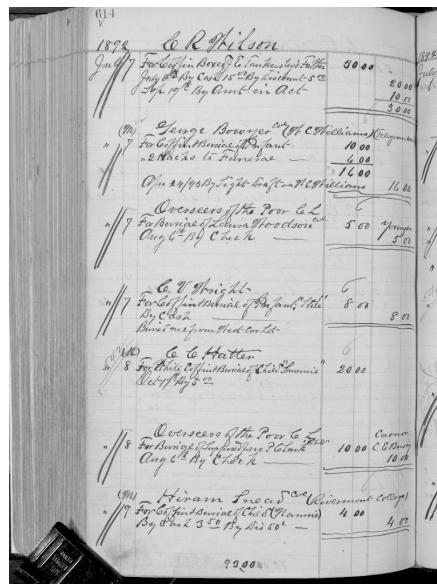 614
1892 C R Wilson
July 7 For Coffin Box &c E. Tankersley's Father 30 00
July 8th By Cash 15 00 By Discount 5 00 20 00
Sep 19th By Amt in Act 10 00
30 00
George Bowyer col (W C Williams)
" 7 For Coffin & Burial of Infant 10 00
" 2 Hacks to Funeral 6 00
16 00
Apr 24/93 By Sight Draft on W C Williams 16 00
Overseers of the Poor C L
" 7 For Burial of Laura Woodson col 5 00 Younger
Aug 6th By Check 5 00
C. V. Wright
" 7 For Coffin & Burial of Infant 8 00
By Cash 8 00
Buried one from West Cor Lot
C C Hatter
" 8 For White Coffin & Burial of Child 20 00
Oct By 5 00
Overseers of the Poor C L
" 8 For Burial of Jno P Clark 10 00 C E Busey
Aug 6th By Check 10 00
Hiram Snead col (Rivermont College)
" 9 For Coffin & Burial of Child (Nannie) 4 00
By Cash 3 50 By Dis 50c 4 00
93.00